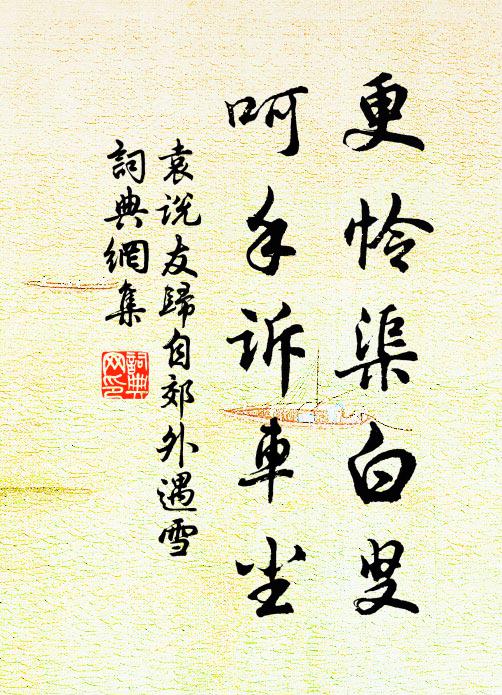 更怜渠白叟
呵手诉車尘
袁说友歸自郊外遇雪
詞典網集
詞典网印